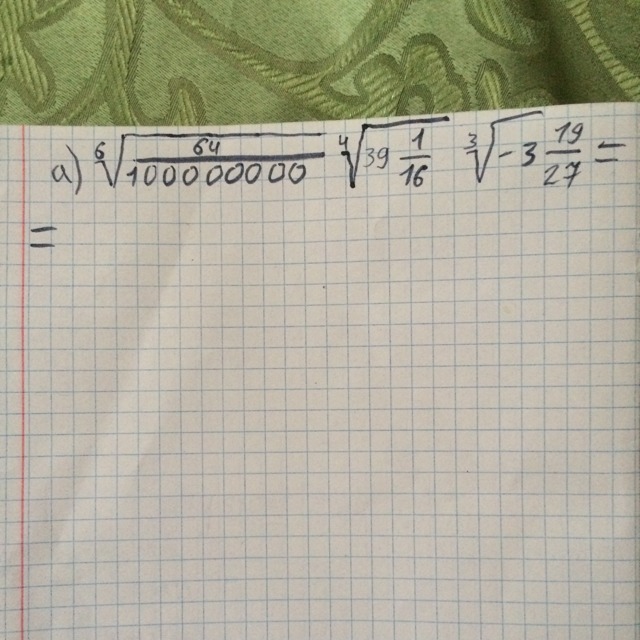 a) ⁶√(64/100000000) ⁴√(39 1/16) ³√(-3 19/27) =
=